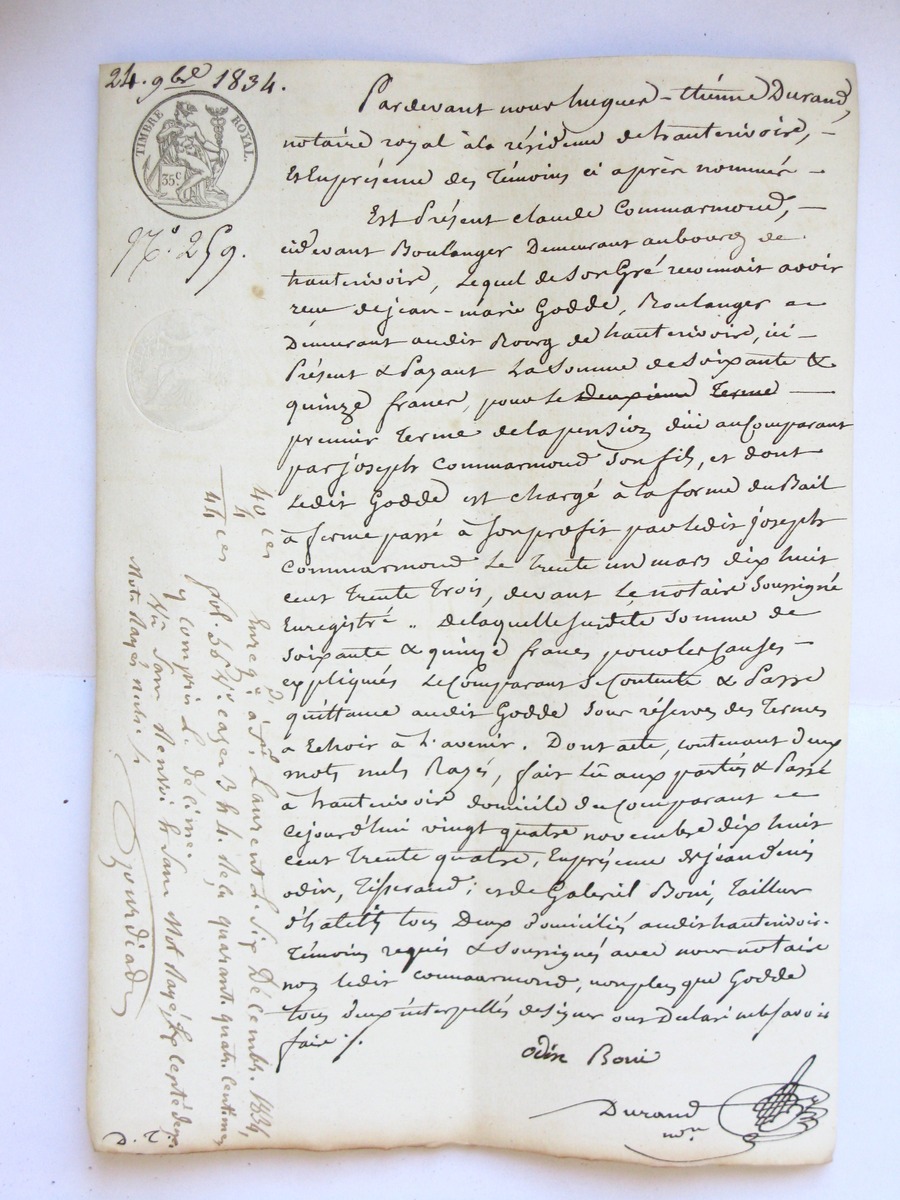 24. 9bre 1834.
TIMBRE ROYAL.
35 c
N.o 259.
Pardevant nous hugues-étienne Durand,
notaire royal à la résidence de hauterivoire, –
Et En présence des Témoins ci après nommés –
Est Présent claude Commarmond, –
cidevant Boulanger Demeurant au bourg de
hauterivoire, Lequel de Son Gré reconnait avoir
reçu de jean-marie Godde, Boulanger
Demeurant audit Bourg de hauterivoire, ici –
Présent & Payant La Somme de Soixante &
quinze francs, pour le deuxieme Terme –
premier Terme de la pension düe au Comparant
par joseph Commarmond Son fils, et dont
Ledit Godde est chargé à la forme du Bail
à ferme passé à Son profit par ledit joseph
Commarmond Le Trente un mars dix huit
cent Trente Trois, devant Le notaire Soussigné
Enregistré .. De laquelle Susdite Somme de
Soixante & quinze francs pour les causes –
expliquées Le Comparant Se Contente & Passe
quittance audit Godde Sous réserves des Termes
à Echoir à L'avenir. Dont acte, contenant deux
mots nuls Rayés, fait Lû aux parties & Passé
à hauterivoire domicile du Comparant
Cejourd'hui vingt quatre novembre dix huit
cent Trente quatre, En présence de jean denis
odin, Tisserand; et de Gabriel Boni, Tailleur
d'habits tous Deux domiciliés audit hauterivoire.
Témoins requis & Soussignés avec nous notaire
non ledit Commarmond, non plus que Godde
tous deux interpellés de signer ont Déclaré ne le Savoir
faire ./.
odin Boni
Durand
nore
40 ces
4
44 ces
Enregé à St Laurent Le Six Décembre 1834,
fol. 56 Vo cases 3 & 4. Reçu quarante quatre centimes
y compris Le décime.
Vu Sans Renvoi & Sans Mot Rayé Excepté deux
Mots Rayés nuls ./.
D. T.